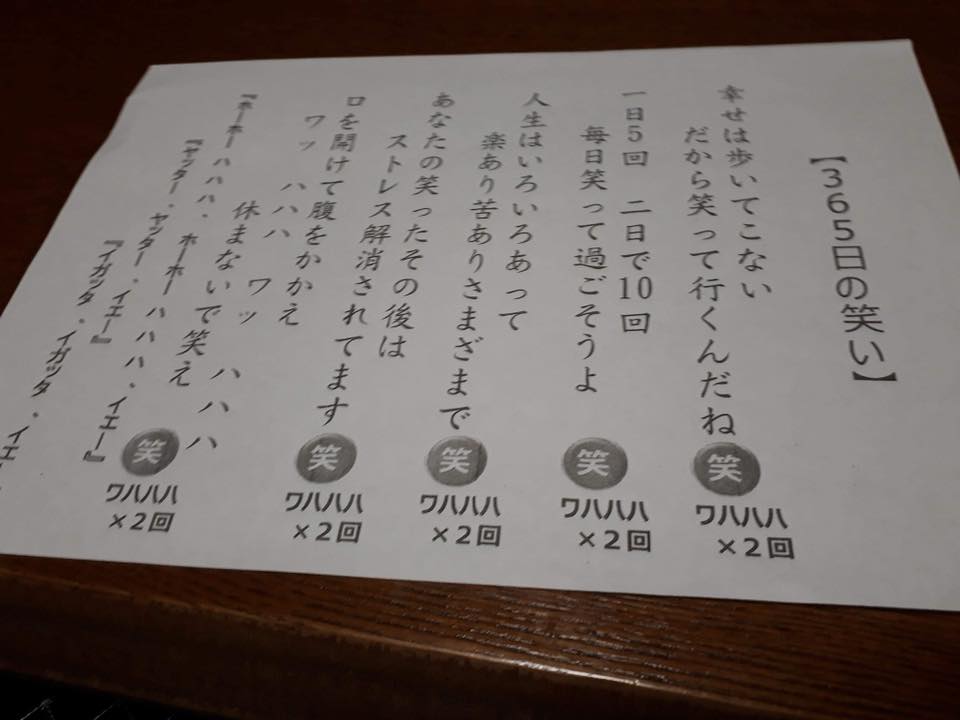 【365日の笑い】
幸せは歩いてこない
だから笑って行くんだね
笑
ワハハハ
×2回
一日5回 二日で10回
毎日笑って過ごそうよ
笑
ワハハハ
×2回
人生はいろいろあって
楽あり苦ありさまざまで
笑
ワハハハ
×2回
あなたの笑ったその後は
ストレス解消されてます
笑
ワハハハ
×2回
口を開けて腹をかかえ
ワッ ハハハ ワッ ハハハ
休まないで笑え
笑
ワハハハ
×2回
『ホーホー ハハハ、ホーホー ハハハ、イエー』
『ヤッター、ヤッター、イエー』
『イガッタ、イガッタ、イエ